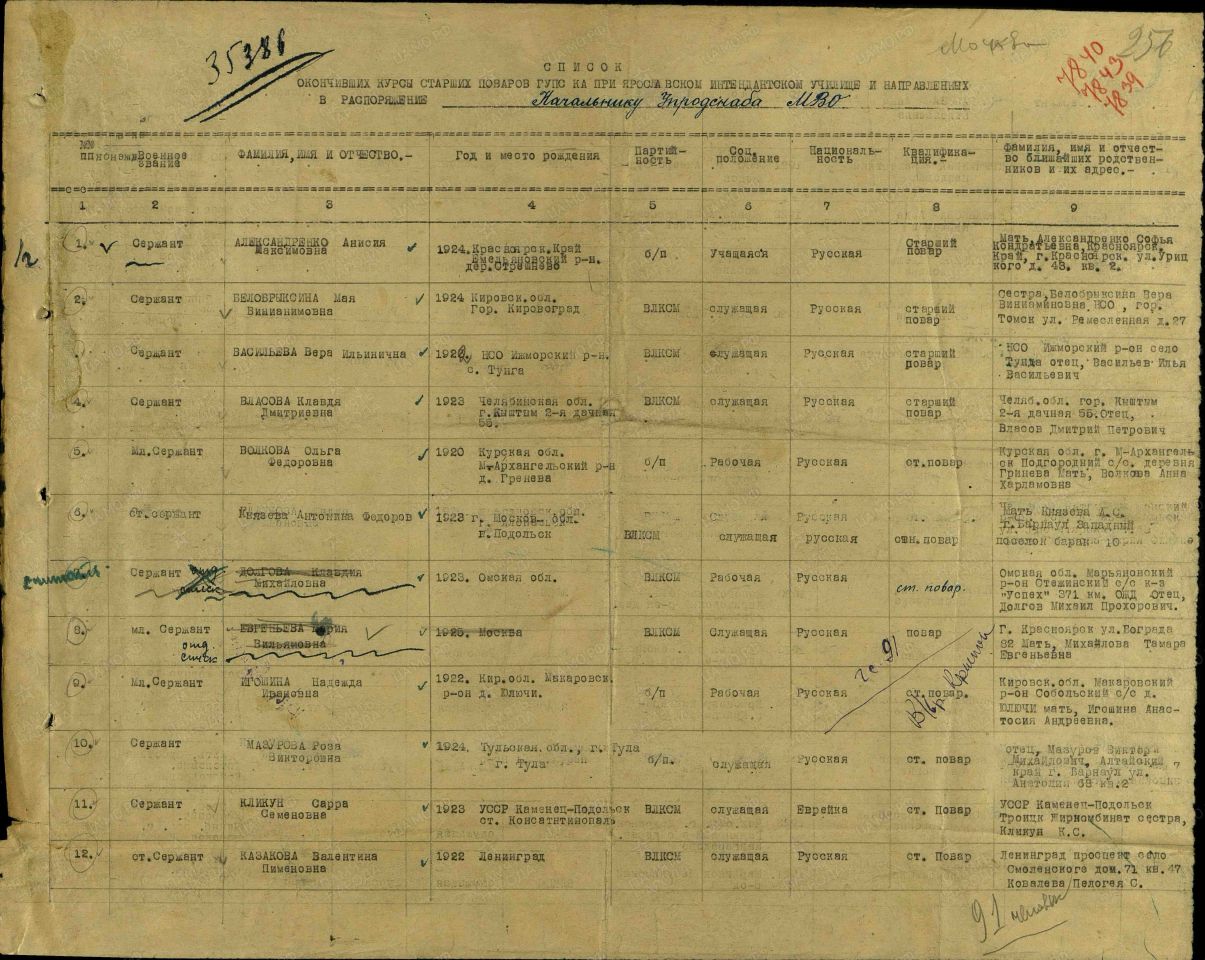 35386
Москва
256
7840
7843
7839
СПИСОК
ОКОНЧИВШИХ КУРСЫ СТАРШИХ ПОВАРОВ ГУПС КА ПРИ ЯРОСЛАВСКОМ ИНТЕНДАНТСКОМ УЧИЛИЩЕ И НАПРАВЛЕННЫХ
В РАСПОРЯЖЕНИЕ Начальнику Упродснаба МВО
№№ пп Военное звание ФАМИЛИЯ, ИМЯ И ОТЧЕСТВО.- Год и место рождения Партий- ность Соц. положение Националь- ность Квалифика- ция.- Фамилия, имя и отчест-
во ближайших родствен-
ников и их адрес.-
1 2 3 4 5 6 7 8 9
1/2
1. Сержант АЛЕКСАНДРЕНКО Анисия 1924. Красноярск. Край б/п Учащаяся Русская Старший Мать, Александренко Софья
Максимовна Емельяновский р-н. повар Кондратьевна, Красноярск.
дер. Стрешнево Край, г. Красноярск. ул. Уриц
кого д. 43. кв. 2.
2. Сержант БЕЛОБРЫКСИНА Мая 1924 Кировск. обл. ВЛКСМ служащая Русская старший Сестра, Белобрыксина Вера
Винианимовна Гор. Кировоград повар Виниаминовна НСО , гор.
Томск ул. Ремесленная д. 27
Сержант ВАСИЛЬЕВА Вера Ильинична 1922 НСО Ижморский р-н. ВЛКСМ служащая Русская старший НСО Ижморский р-он село
с. Тунга повар Тунда отец, Васильев Илья
Васильевич
4. Сержант ВЛАСОВА Клавдя 1923 Челябинская обл. ВЛКСМ служащая Русская старший Челяб. обл. гор. Кыштым
Дмитриевна г. Кыштым 2-я дачная повар 2-я дачная 55. Отец,
55. Власов Дмитрий Петрович
5. Мл. Сержант ВОЛКОВА Ольга 1920 Курская обл. б/п Рабочая Русская ст. повар Курская обл. г. М-Архангель
Федоровна М-Архангельский р-н ск Подгородний с/с. деревня
д. Гренева Гринева Мать, Волкова Анна
Харламовна
6. ст. сержант Князева Антонина Федоров 1923 г. Москов- обл. ВЛКСМ служащая русская ст. повар Мать Князева А.С.
п. Подольск г. Барнаул Западный
поселок барак 10
Сержант ДОЛГОВА Клавдия 1923. Омская обл. ВЛКСМ Рабочая Русская ст. повар. Омская обл. Марьяновский
Михайловна р-он Стежинский с/с к-з
"Успех" 371 км. ОЖД Отец,
Долгов Михаил Прохорович.
8. мл. Сержант ЕВГЕНЬЕВА Мария 1925. Москва ВЛКСМ Служащая Русская повар Г. Красноярск ул. Вограда
отд. Вильямовна 82 Мать, Михайлова Тамара
список Евгеньевна
9. Мл. Сержант ИГОШИНА Надежда 1922. Кир. обл. Макаровск. б/п Рабочая Русская ст. повар. Кировск. обл. Макаровский
Ивановна р-он д. Юлючи. р-он Собольский с/с д.
ЮЛЮЧИ мать, Игошина Анас-
тосия Андреевна.
10. Сержант МАЗУРОВА Роза 1924. Тульская обл., г. Тула б/п. служащая Русская ст. повар отец, Мазуров Виктори
Викторовна г. Тула Михайлович, Алтайский
край г. Барнаул ул.
Анатолия 68 кв. 2
11. Сержант КЛИКУН Сарра 1923 УССР Каменец-Подольск ВЛКСМ служащая Еврейка ст. Повар УССР Каменец-Подольск
Семеновна ст. Консатнтинополь Троицк Жиркомбинат сестра,
Кликун К.С.
12. ст. Сержант КАЗАКОВА Валентина 1922 Ленинград ВЛКСМ служащая Русская ст. Повар Ленинград проспект село
Пименовна Смоленского дом. 71 кв. 47
Ковалева Пелогея С.
91 человек